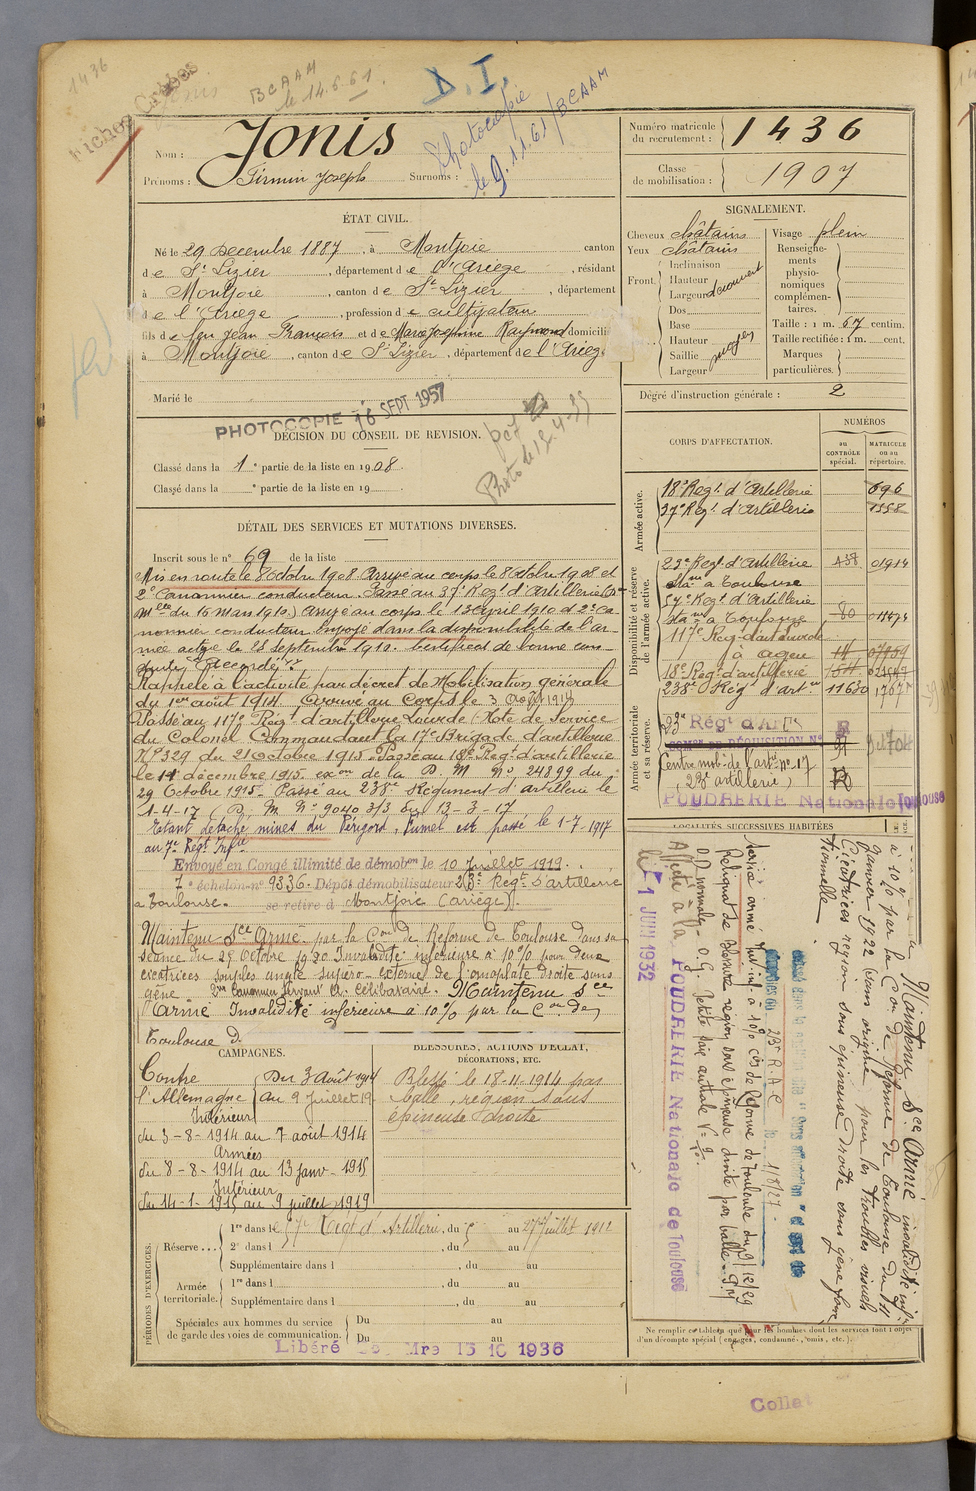 1436
Fiches Croisées
BCAAM
le 14.6.61.
D.I.
Photocopie
le 9.11.61/BCAAM
Nom : Jonis
Prénoms : Firmin Joseph Surnoms :
Numéro matricule du recrutement : 1436
Classe de mobilisation : 1907
ÉTAT CIVIL.
Né le 29 Decembre 1887, à Montjoie canton
de St Lizier, département de l'Ariège, résidant
à Montjoie, canton de St Lizier, département
de l'Ariège, profession de cultivateur
fils de feu Jean François et de Marie Josephine Raymond domiciliés
à Montjoie, canton de St Lizier, département de l'Ariège
Marié le
PHOTOCOPIE 16 SEPT 1957
SIGNALEMENT.
Cheveux châtains
Yeux châtains
Front
Inclinaison
Hauteur
Largeur découvert
Dos
Base
Hauteur
Saillie moyen
Largeur
Visage plein
Renseignements physionomiques complémentaires.
Taille : 1 m. 67 centim.
Taille rectifiée : 1 m. cent.
Marques particulières.
Dégré d'instruction générale : 2
DÉCISION DU CONSEIL DE REVISION.
Classé dans la 1e partie de la liste en 1908.
Classé dans la e partie de la liste en 19
DÉTAIL DES SERVICES ET MUTATIONS DIVERSES.
Inscrit sous le n° 69 de la liste
Mis en route le 8 octobre 1908 Arrivé au corps le 8 octobre 1908 et
2e Canonnier conducteur. Passé au 37e Regt d'Artillerie
du 15 Mars 1910) arrivé au corps le 13 avril 1910 et 2e ca-
nonnier conducteur. Envoyé dans la disponibilité de l'ar-
mée active le 28 septembre 1910. Certificat de bonne con-
duite "Accordé"
Rappelé à l'activité par décret de Mobilisation générale
du 1er août 1914. Arrivé au Corps le 3 Août 1914
Passé au 117e Régt d'artillerie Lourde (Note de Service
du Colonel Commandant la 17e Brigade d'artillerie
N° 329 du 21 Octobre 1915. Passé au 18e Regt d'artillerie
le 11 décembre 1915. exon de la D. M n° 24899 du
29 Octobre 1915. Passé au 238e Régiment d'artillerie le
1-4-17 (D. M. N° 9040 3/3 du 13-3-17
Etant détaché mines du Périgord, Fumel est passé le 1-7-1917
au 7e Régt Infie
Envoyé en Congé illimité de démobon le 10 Juillet 1919.
7e échelon n° 9336. Dépôt démobilisateur 23e Regt d'artillerie
à Toulouse. se retire à Montjoie (Ariège).
Maintenu Sce Armé par la Con de Réforme de Toulouse dans sa
séance du 29 Octobre 1920 Invalidité inférieure à 10% pour deux
cicatrices souples angle supero-externe de l'omoplate droite sans
gêne 2me Canonnier servant Célibataire. Maintenu Sce
Armé Invalidité inférieure à 10% par la Con de
Toulouse d.
CORPS D'AFFECTATION.
NUMÉROS
au CONTRÔLE spécial.
MATRICULE ou au répertoire.
Armée active.
18e Regt d'Artillerie 696
37e Regt d'Artillerie 1358
Disponibilité et réserve de l'armée active.
23e Regt d'Artillerie
à Toulouse
57e Regt d'Artillerie
à Toulouse 80
117e Reg. d'art. lourde
à agen
18e Reg. d'artillerie
238e Rég d'artie 11630
Armée territoriale et sa réserve.
23e Régt d'Artie
COMon DE RÉQUISITION N°
Centre mob. de l'artie n° 17
(23e artillerie)
POUDRERIE Nationale Toulouse
LOCALITÉS SUCCESSIVES HABITÉES
Maintenu Sce Armé invalidité inf.
à 10% par la Con de Réforme de Toulouse du 11
janvier 1922 sans origine pour les troubles visuels
Cicatrices region sous épineuse droite sans gêne fonc
tionnelle
23e R.A.C. le 1/8/27.
Service armé Inv. inf. à 10% Cion de Réforme de Toulouse du 9/12/29
Reliquat de blessure region sous épineuse droite par balle.
Affecté à la POUDRERIE Nationale de Toulouse
le 1 JUIN 1932
CAMPAGNES.
Contre
l'Allemagne
Du 3 Août 1914
au 9 Juillet 19
Intérieur
du 3-8-1914 au 7 août 1914
Armées
du 8-8-1914 au 13 janv-1915
Intérieur
du 14-1-1915 au 9 juillet 1919
BLESSURES, ACTIONS D'ÉCLAT, DÉCORATIONS, ETC.
Blessé le 18-11-1914 par
balle, région sous
épineuse droite
PÉRIODES D'EXERCICES.
Réserve
1re dans le 57e Regt d'Artillerie, du 5 au 27 Juillet 1912
2e dans l , du au
Supplémentaire dans l , du au
Armée territoriale.
1re dans l , du au
Supplémentaire dans l , du au
Spéciales aux hommes du service de garde des voies de communication.
Du au
Du au
Ne remplir ce tableau que pour les hommes dont les services font l'objet
d'un décompte spécial (engagés, condamné-, omis, etc.).
Libéré Mre 15 10 1936